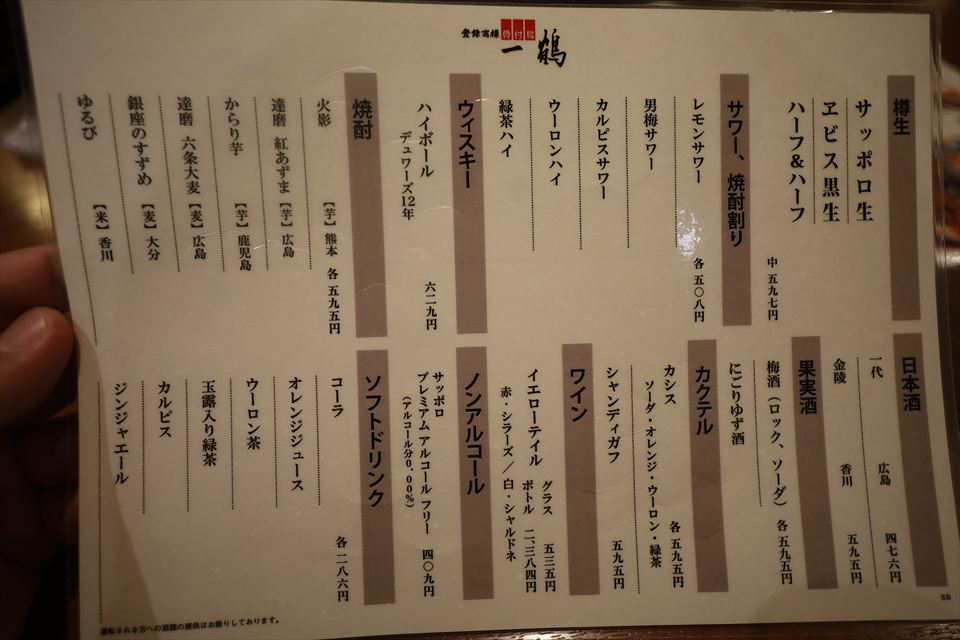 登録商標 骨付鳥 一鶴
樽生
サッポロ生
ヱビス黒生
ハーフ&ハーフ
中 五九七円
サワー、焼酎割り
レモンサワー
各 五〇八円
男梅サワー
カルピスサワー
ウーロンハイ
緑茶ハイ
ウィスキー
ハイボール
デュワーズ12年
六二九円
焼酎
火影 【芋】 熊本 各 五九五円
達磨 紅あずま 【芋】 広島
からり芋 【芋】 鹿児島
達磨 六条大麦 【麦】 広島
銀座のすずめ 【麦】 大分
ゆるび 【米】 香川
日本酒
一代 広島 四七六円
金陵 香川 五九五円
果実酒
梅酒(ロック、ソーダ) 各 五九五円
にごりゆず酒
カクテル
カシス
ソーダ・オレンジ・ウーロン・緑茶
各 五九五円
シャンディガフ 五九五円
ワイン
イエローテイル
グラス 五三五円
ボトル 二、三八四円
赤・シラーズ/白・シャルドネ
ノンアルコール
サッポロ
プレミアム アルコール フリー 四〇九円
(アルコール分0.00%)
ソフトドリンク
コーラ 各 二八六円
オレンジジュース
ウーロン茶
玉露入り緑茶
カルピス
ジンジャエール
運転される方への酒類の提供はお断りしております。
SB